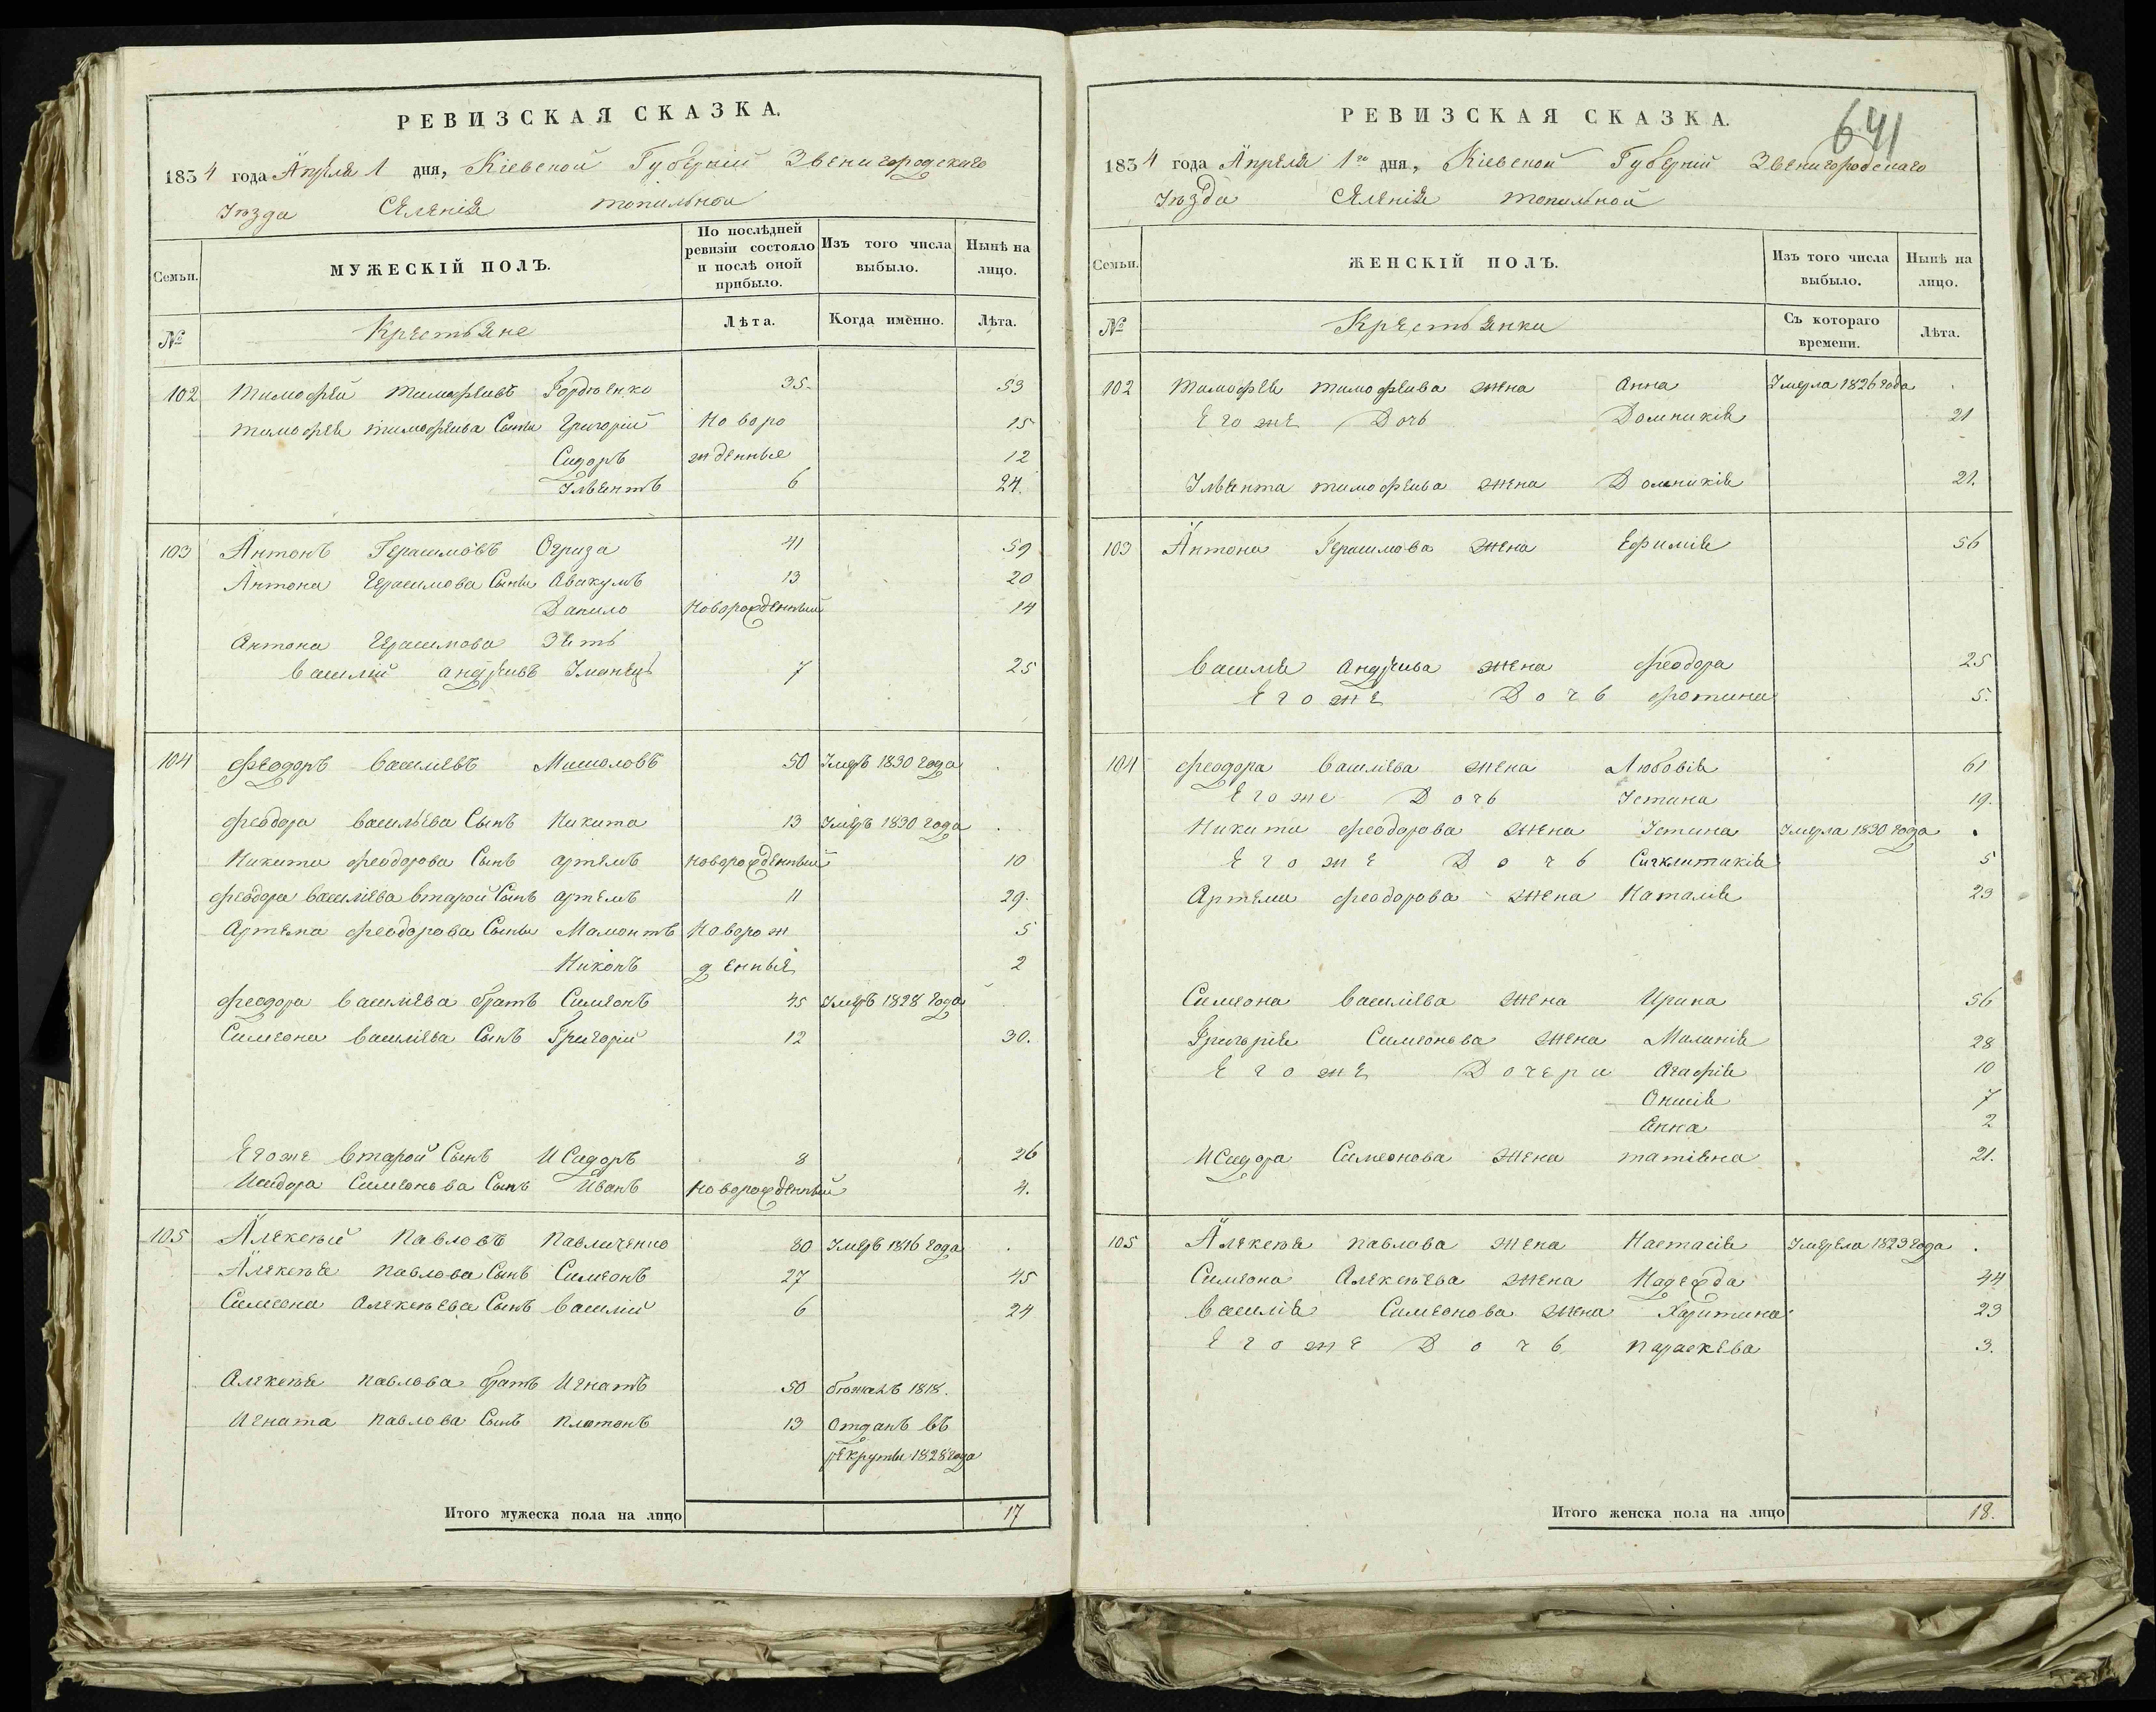 РЕВИЗСКАЯ СКАЗКА.
1834 года Апреля 1 дня, Кіевской Губерніи Звенигородскаго
Уѣзда Селенія топильной
Семьи.
МУЖЕСКІЙ ПОЛЪ.
По послѣдней ревизіи состояло и послѣ оной прибыло.
Изъ того числа выбыло.
Нынѣ на лицо.
№
Крестьяне
Лѣта.
Когда имѐнно.
Лѣта.
102 Тимофей тимофеивъ Гордіенко 35 53
тимофея тимофеива Сыны Григорій Новоро 15
Сидоръ жденные 12
6 24.
103 Антонъ Герасимовъ Огриза 41 59
Антона Герасимова Сыны Авакумъ 13 20
Данило Новорожденный 14
Антона Герасимова Зять
василій андреивъ Уманецъ 7 25
104 феодоръ василіевъ 50 Умеръ 1830 года
феодора василіева Сынъ Никита 13 Умеръ 1830 года
Никиты феодорова Сынъ артемъ новорожденный 10
феодора василіева второй Сынъ артемъ 11 29.
Артема феодорова Сыны Мамонтъ Новорож 5
Никонъ денныя 2
феодора василіева братъ Симеонъ 45 Умеръ 1828 года
Симеона василіева Сынъ Григорій 12 30.
Егоже второй Сынъ Исидоръ 8 26
Исидора Симеонова Сынъ Иванъ Новорожденный 4.
105 Алексѣй Павловъ Павличенко 80 Умеръ 1816 года
Алексѣя Павлова Сынъ Симеонъ 27 45
Симеона Алексѣева Сынъ василій 6 24
Алексѣя павлова братъ Игнатъ 50 бѣжалъ 1818.
Игната павлова Сынъ платонъ 13 Отданъ въ
рекруты 1828 года
Итого мужеска пола на лицо 17
641
РЕВИЗСКАЯ СКАЗКА.
1834 года Апреля 1го дня, Кіевской Губерніи Звенигородскаго
Уѣзда Селенія топильной
Семьи.
ЖЕНСКІЙ ПОЛЪ.
Изъ того числа выбыло.
Нынѣ на лицо.
№
Крестьянки
Съ котораго времени.
Лѣта.
102 Тимофея тимофеива жена Анна Умерла 1826 года
Егоже Дочь Домникія 21
тимофеива жена Домникія 21.
103 Антона Герасимова жена Ефимія 56
василія андреива жена феодора 25
Егоже Дочь фотина 5.
104 феодора василіева жена Любовія 61
Егоже Дочь Устина 19.
Никиты феодорова жена Устина Умерла 1830 года
Егоже Дочь Сигклитикія 5
Артема феодорова жена Наталія 23
Симеона василіева жена Ирина 56
Григорія Симеонова жена Маланія 28
Егоже Дочера Агафія 10
7
Анна 2
Исидора Симеонова жена татіяна 21.
105 Алексѣя павлова жена Настасія Умерла 1823 года
Симеона Алексѣева жена Надежда 44
василія Симеонова жена Харитина 23
Егоже Дочь параскева 3.
Итого женска пола на лицо 18.